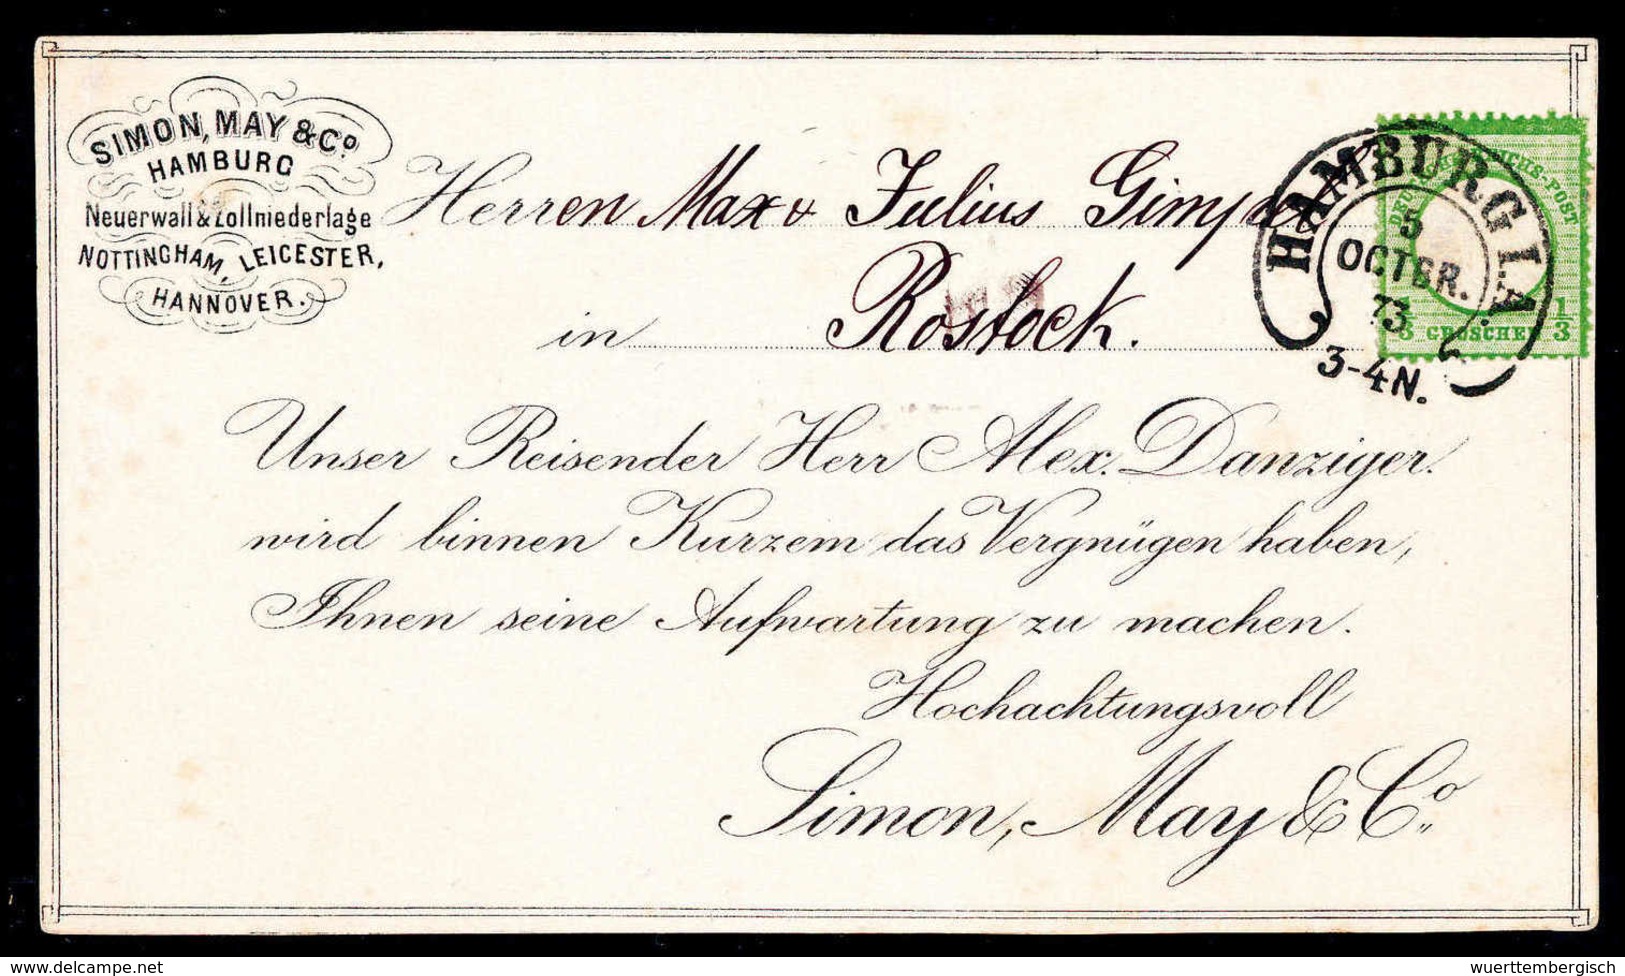 SIMON, MAY & Co.
HAMBURG
Neuerwall & Zollniederlage
NOTTINGHAM, LEICESTER,
HANNOVER.
Herren Max & Julius Gimpel
in Rostock.
HAMBURG I.A.
5
OCTBR.
73
3-4N.
REICHS-POST
1/3 GROSCHEN 1/3
Unser Reisender Herr Alex. Danziger.
wird binnen Kurzem das Vergnügen haben,
Ihnen seine Aufwartung zu machen.
Hochachtungsvoll
Simon, May & Co.
wuerttembergisch
delcampe.net